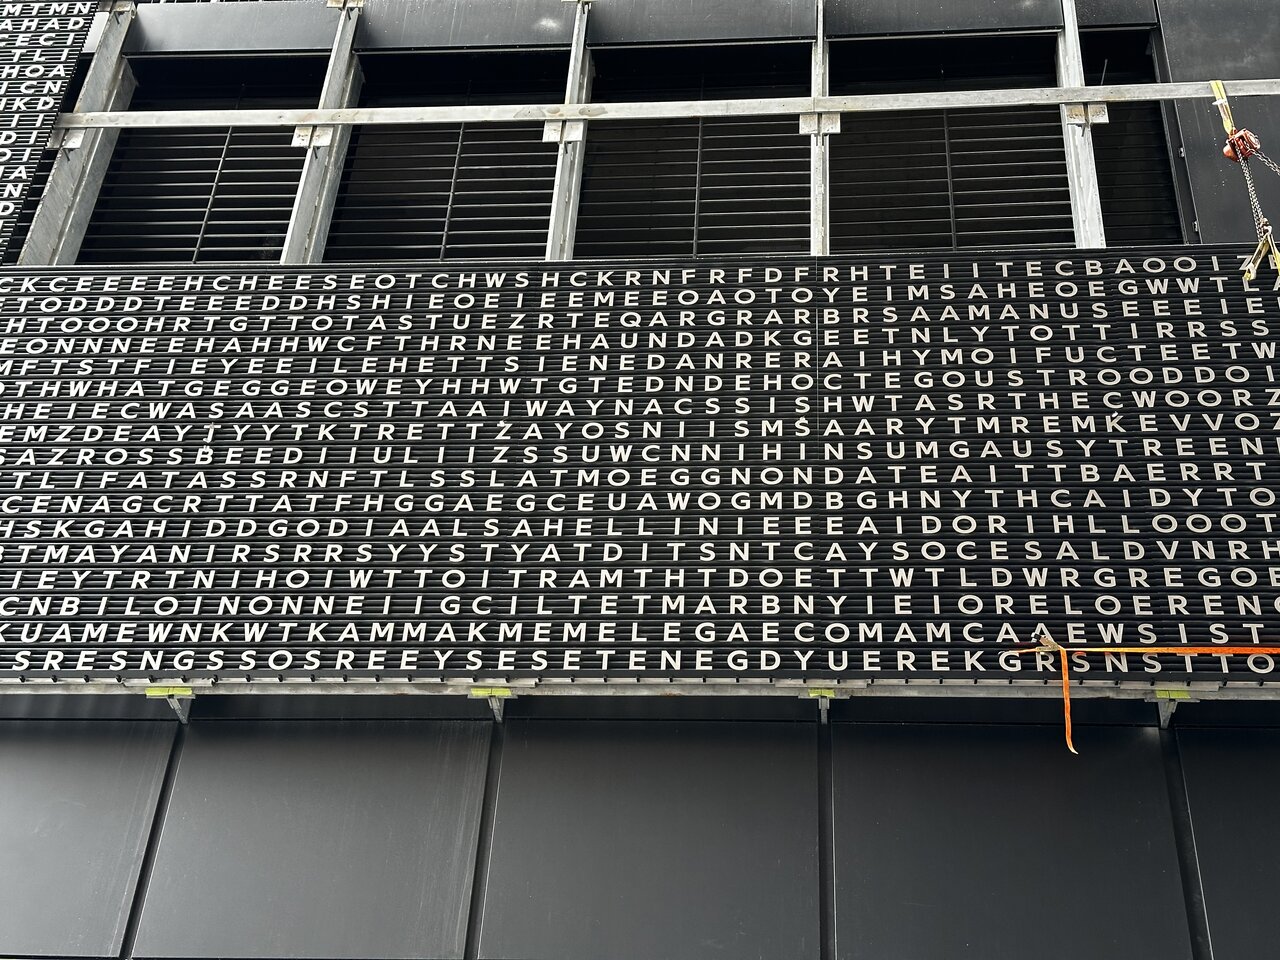 MTMN
AHAD
CECI
TLI
HOA
HCN
HKD
II
DI
OI
IA
N
D
CKCEEEEEHCHEESEOTCHWSHCKRNFRFDFRHTEIITECBAOOIZ
ETODDDTEEEDDHSHIEOEIEEMEEOAOTOYEIMSAHEOEGWWTLA
HTOOOHRTGTTOTASTUEZRTEQARGRARBRSAAMANUSEEEIE
EONNNEEHAHHWCFTHRNEEHAUNDADKGEETNLYTOTTIRRSS
MFTSTFIEYEEILEHETTSIENEDANRERAIHYMOIFUCTEETW
OTHWHATGEGGEOWEYHHWTGTEDNDEHOCTEGOUSTROODDOI
HEIECWASAASCSTTAAIWAYNACSSISHWTASRTHECWOORZ
EMZDEAYJYYTKTRETTZAYOSNIISMSAARYTMREMKEVVOZ
SAZROSSBEEDIIULIIZSSUWCNNIHINSUMGAUSYTREEN
TLIFATASSRNFTLSSLATMOEGGNONDATEAITTBAERRT
CENAGCRTTATFHGGAEGCEUAWOGMDBGHNYTHCAIDYTO
HSKGAHIDDGODIAALSAHELLINIEEEAIDORIHLLOOOT
BTMAYANIRSRRSYYSTYATDITSNTCAYSOCESALDVNRH
IEYTRTNIHOIWTTOITRAMTHTDOETTWTLDWRGREGOE
CNBILOINONNEIIGCILTETMARBNYIEIORELOERENG
KUAMEWNKWTKAMMAKMEMELEGAECOMAMCAAEWSIST
SRESNGSSOSREEYSESETENEGDYUEREKGRSNSTTO